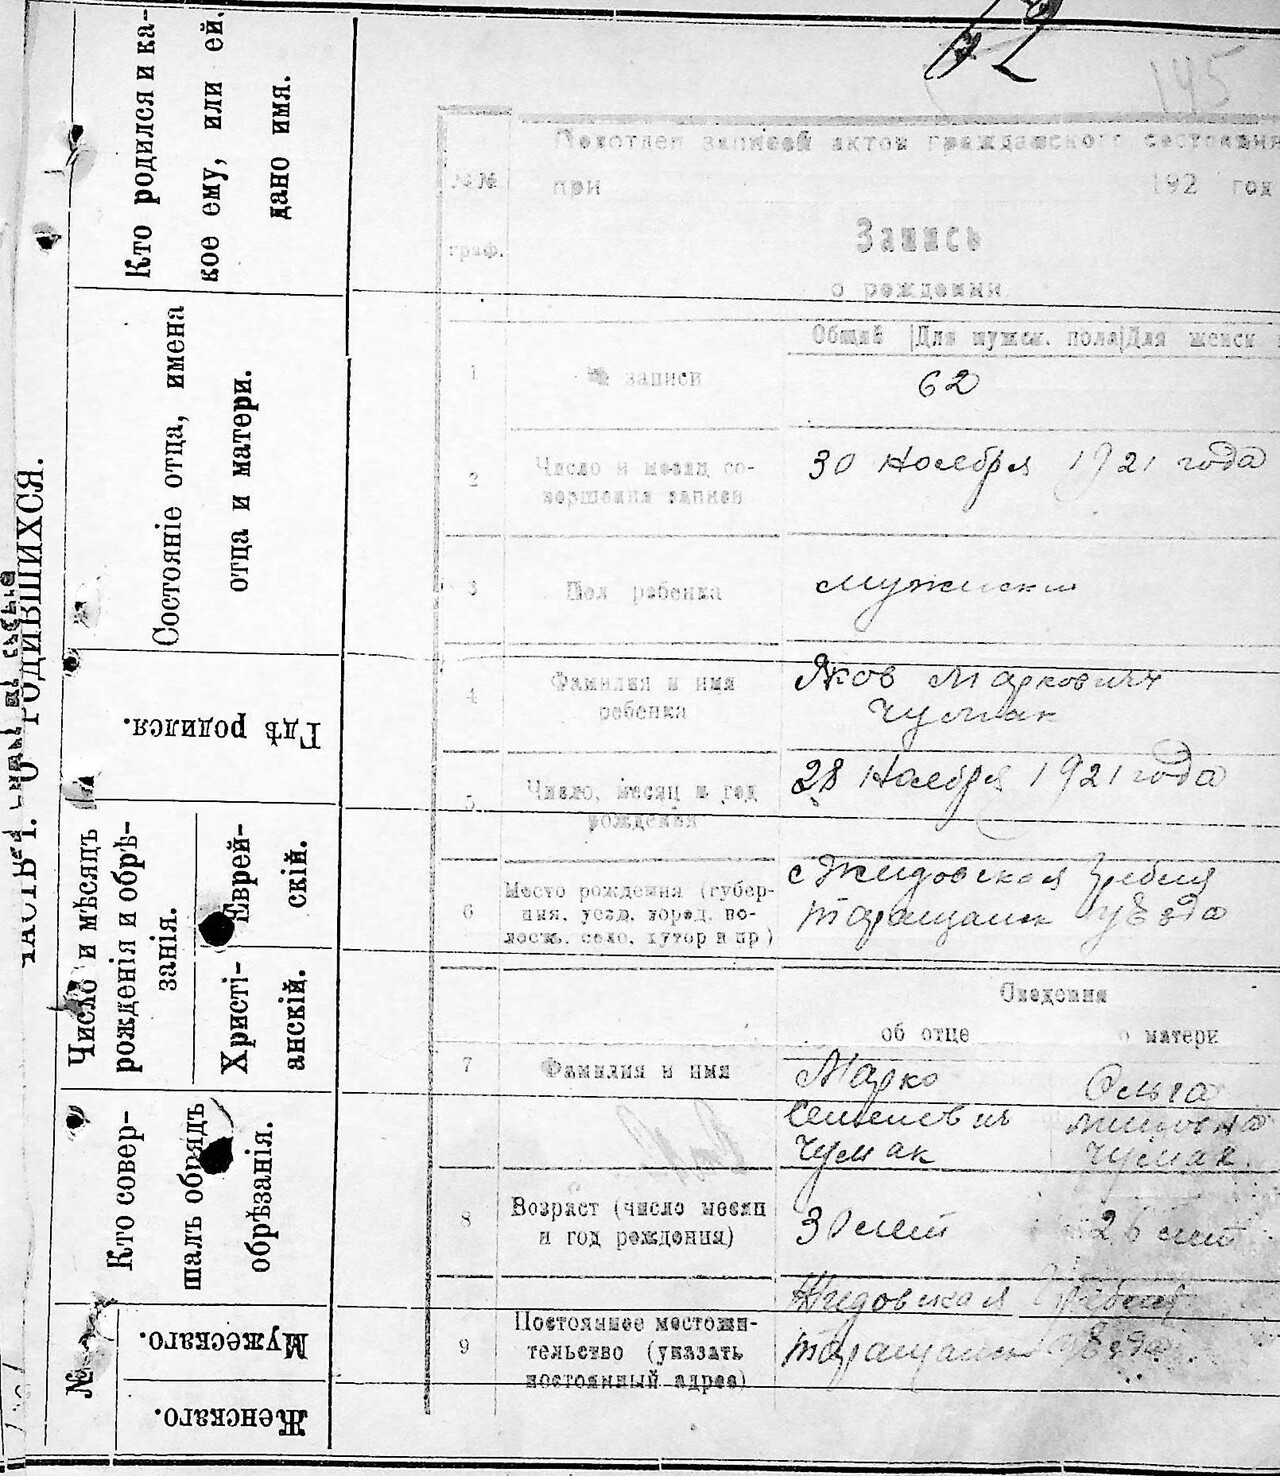 62
145
Подотдел записей актов гражданского состояния
при 192 год
№№ граф.
Запись
о рождении
Общий | Для мужск. пола | Для женск
1 № записи 62
2 Число и месяц со-
вершения записи
30 Ноября 1921 года
3 Пол ребенка мужиский
4 Фамилия и имя
ребенка
Яков Маркович
Чумак
5 Число, месяц и год
рождения
28 Ноября 1921 года
6 Место рождения (губер-
ния, уезд, город, во-
лость, село, хутор и пр)
с Жидовская Гребля
Таращанск уезда
Сведения
об отце о матери
7 Фамилия и имя
Марко
Семенович
Чумак
Ольга
Чумак
8 Возраст (число месяц
и год рождения)
30 лет 26 лет
9 Постоянное местожи-
тельство (указать
постоянный адрес)
Жидовская Гребля
Таращанск уезда
ЧАСТЬ I. О РОДИВШИХСЯ.
Кто родился и ка-
кое ему, или ей
дано имя.
Состоянiе отца, имена
отца и матери.
Гдѣ родился.
Число и мѣсяцъ
рожденiя и обрѣ-
занiя.
Еврей-
скiй.
Христi-
анскiй.
Кто совер-
шалъ обрядъ
обрѣзанiя.
№
Мужескаго.
Женскаго.